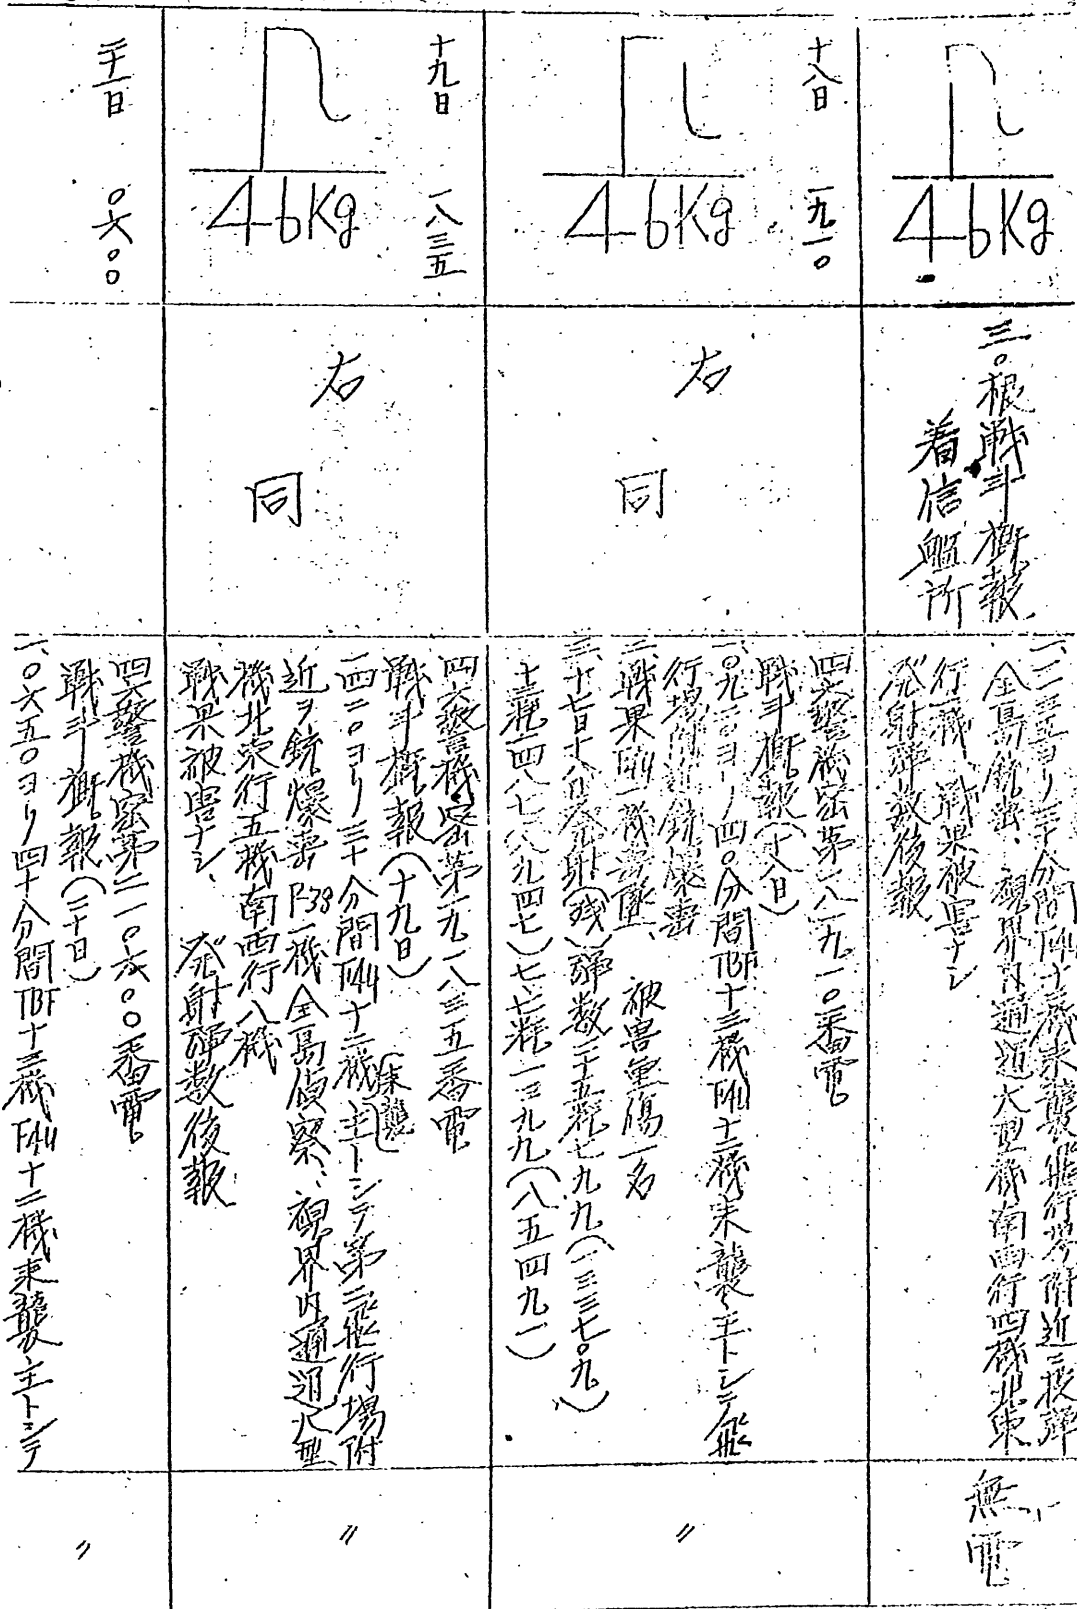 46Kg
三〇根戦斗概報
着信艦所
一、一二五五ヨリ三十分間F4U十三機来襲飛行場附近ニ投弾
全島銃撃、視界内通過大型機南西行四機北東
行一機、戦果被害ナシ
発射弾数後報
無電
十八日 一九一〇
46Kg
右同
四六警機密第一八一九一〇番電
戦斗概報(十八日)
四〇分間TBF十三機F4U十二機来襲主トシテ飛
行場附近銃爆撃
二、戦果F4U一機撃墜、被害重傷一名
三、十七日十八日発射(残)弾数二十五粍七九九(一三三七〇九)
十三粍二四八七(八九四七)七、七粍一三九九(八五四九一)
〃
十九日 一八三五
46Kg
右同
四六警機密第一九一八三五番電
戦斗概報(十九日)
一四二〇ヨリ三十分間F4U十二機来襲主トシテ第二飛行場附
近ヲ銃爆撃P-38一機全島偵察、視界内通過大型
機北東行五機南西行八機
戦果被害ナシ、発射弾数後報
〃
二十一日 〇六〇〇
四六警機密第二一〇六〇〇番電
戦斗概報(二十日)
一、〇六五〇ヨリ四十分間TBF十三機F4U十二機来襲主トシテ
〃